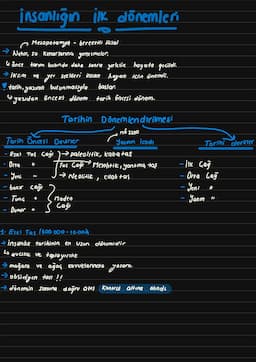 insanlığın ilk dönemleri
Mezopotamya - bereketli hilal
→ Nehir, su kenarlarına yerleşmişler.
↳ önce tarım bulundu daha sonra yerleşik hayata geçildi.
→ İklim ve yer şekilleri insan hayatı için önemli.
! tarih, yazının bulunmasıyla başlar.
↳ yazıdan öncesi dönem tarih öncesi dönem.
Tarihin Dönemlendirilmesi
→ MÖ 3200
Tarih Öncesi Devirler Yazının İcadı Tarihi devirler
- Eski Taş Çağı → paleolitik, kabataş
- Orta " Taş Çağı → Mezolitik, yontma taş
- Yeni " → Neolitik, cilalı taş
- bakır Çağı
- Tunç " Maden Çağı
- Demir "
- İlk Çağ
- Orta Çağ
- Yeni "
- Yakın "
1- Eski Taş
→ İnsanlık tarihinin en uzun dönemidir.
↳ avcılık ve toplayıcılık
→ mağara ve ağaç kovuklarında yaşam.
→ obsidyen taşı !!
→ dönemin sonuna doğru ateş kontrol altına alındı